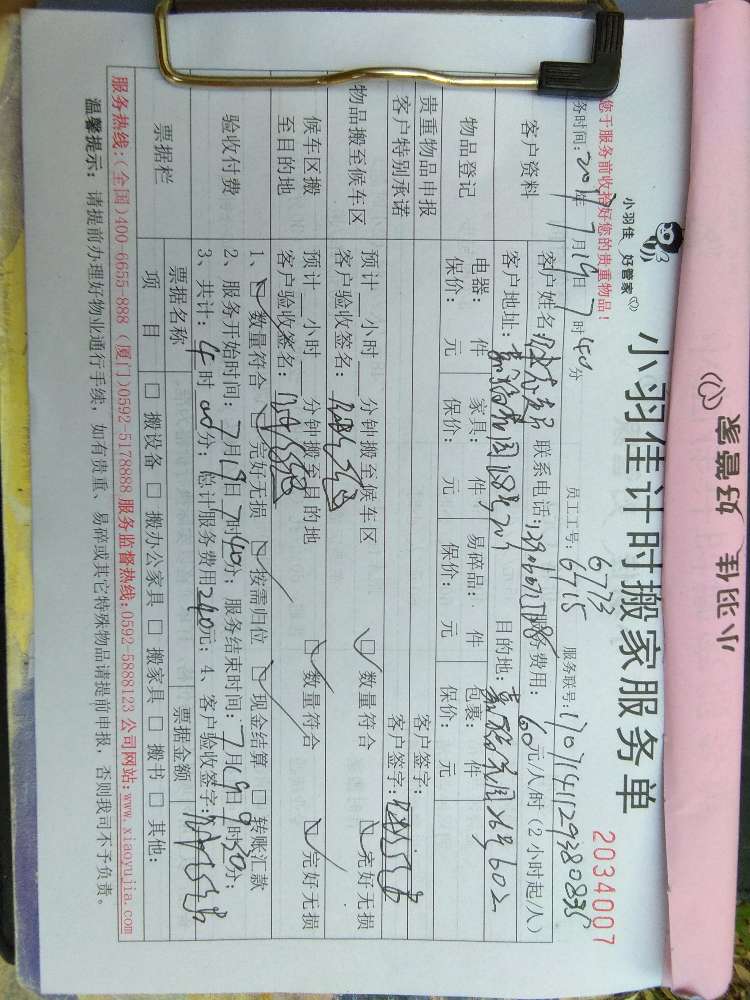 小羽佳 好管家
小羽佳 好管家
小羽佳计时搬家服务单
2034007
您于服务前收拾好您的贵重物品!
员工工号: 6773 6715 服务联号:
务时间: 2017年7月19日7时40分
客户资料
客户姓名: 联系电话: 服务费用: 60元/人/时(2小时起/人)
客户地址: 目的地:
物品登记
电器: 件 家具: 件 易碎品: 件 包裹: 件
保价: 元 保价: 元 保价: 元 保价: 元
贵重物品申报 客户签字:
客户特别承诺 客户签字:
物品搬至候车区
预计 小时 分钟搬至候车区 □ 数量符合 □ 完好无损
客户验收签名:
候车区搬至目的地
预计 小时 分钟搬至目的地 □ 数量符合 □ 完好无损
客户验收签名:
验收付费
1、□ 数量符合 □ 完好无损 □ 按需归位 □ 现金结算 □ 转账汇款
2、服务开始时间: 7月19日7时40分; 服务结束时间: 7月19日9时30分;
3、共计: 4时00分; 总计服务费用240元; 4、客户验收签字:
票据栏 票据名称 票据金额
项目 □ 搬设备 □ 搬办公家具 □ 搬家具 □ 搬书 □ 其他:
服务热线:(全国)400-6655-888 (厦门)0592-5178888 服务监督热线:0592-5888123 公司网站:www.xiaoyujia.com
温馨提示: 请提前办理好物业通行手续, 如有贵重、易碎或其它特殊物品请提前申报, 否则我司不予负责。